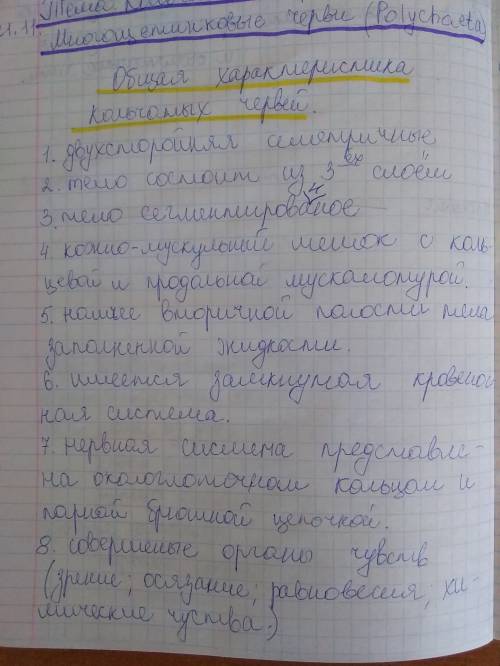 Тема
1.11. Многощетинковые черви (Polychaeta)
Общая характеристика
кольчатых червей.
1. двухсторойняя семетричные
2. тело состоит из 3ех слоём
3. тело сегментированое
4. кожно-мускульный мешок с коль
цевой и продольной мускамотурой.
5. налчее вторичной полости тела
заполненной жидкости.
6. имеется замкнутая кровенос
ная система.
7. нервная система представле-
на окологлоточном кольцом и
парной брюшной цепочкой.
8. совершеные органы чувств
(зрение; осязание; равновесия; хи-
мические чуства.)